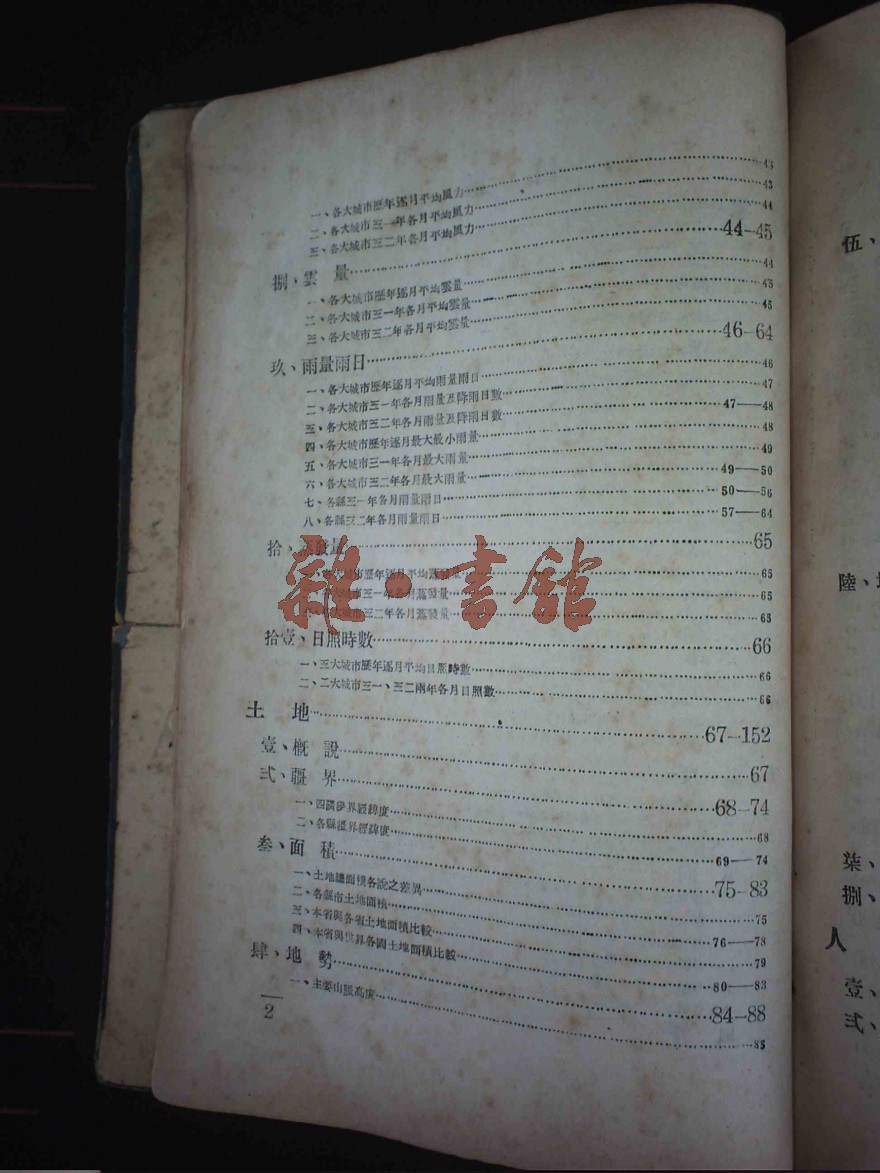 一、各大城市歷年逐月平均風力 43
二、各大城市三一年各月平均風力 43
三、各大城市三二年各月平均風力 44
捌、雲 量 44—45
一、各大城市歷年逐月平均雲量 44
二、各大城市三一年各月平均雲量 45
三、各大城市三二年各月平均雲量 45
玖、雨量雨日 46—64
一、各大城市歷年逐月平均雨量雨日 46
二、各大城市三一年各月雨量及降雨日數 47
三、各大城市三二年各月雨量及降雨日數 47—48
四、各大城市歷年逐月最大最小雨量 48
五、各大城市三一年各月最大雨量 49
六、各大城市三二年各月最大雨量 49—50
七、各縣三一年各月雨量雨日 50—56
八、各縣三二年各月雨量雨日 57—64
拾、蒸發量 65
大城市歷年逐月平均蒸發量 65
大城市三一年各月蒸發量 65
大城市三二年各月蒸發量 65
雜·書館
拾壹、日照時數 66
一、三大城市歷年逐月平均日照時數 66
二、二大城市三一、三二兩年各月日照數 66
土 地 67—152
壹、概 說 67
弍、疆 界 68—74
一、四隣 界經緯度 68
二、各縣疆界經緯度 69—74
叁、面 積 75—83
一、土地總面積各說之差異 75
二、各縣市土地面積 76—78
三、本省與各省土地面積比較 79
四、本省與世界各國土地面積比較 80—83
肆、地 勢 84—88
一、主要山脈高度 85
2
伍、
陸、
柒、
捌、
人
壹、
弍、